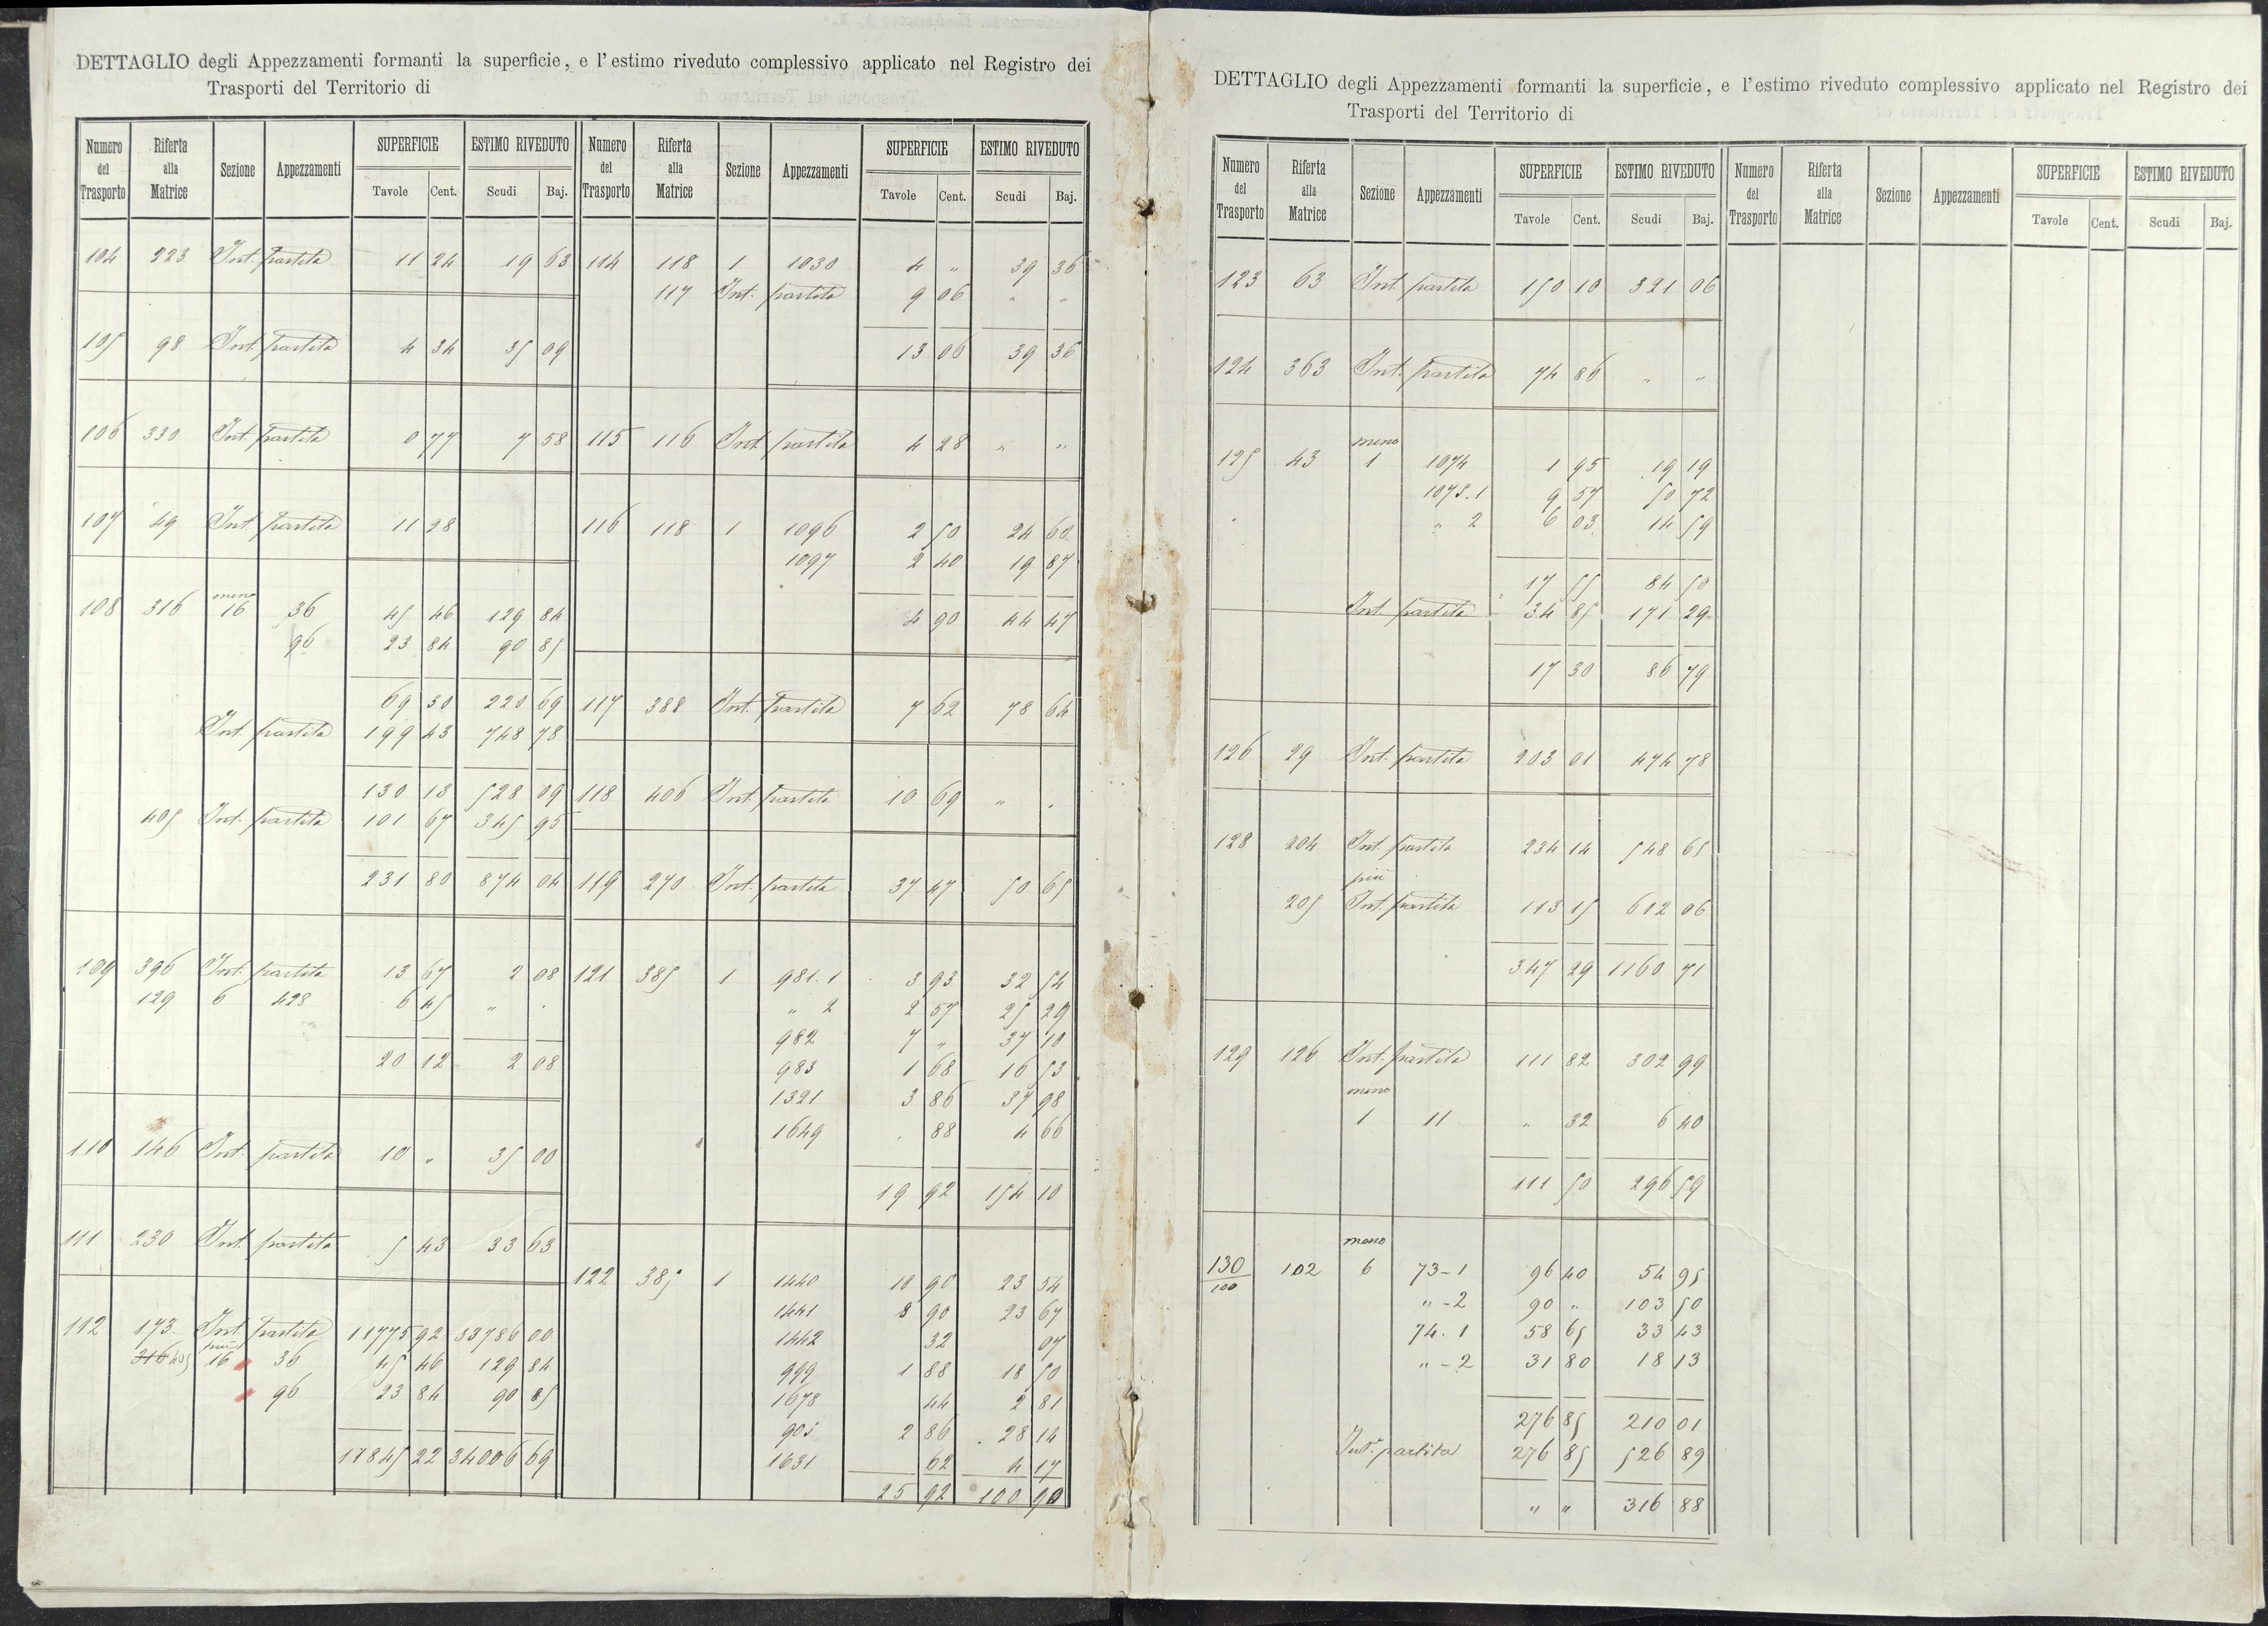 DETTAGLIO degli Appezzamenti formanti la superficie, e l'estimo riveduto complessivo applicato nel Registro dei
Trasporti del Territorio di
Numero del Trasporto | Riferta alla Matrice | Sezione | Appezzamenti | SUPERFICIE Tavole | Cent. | ESTIMO RIVEDUTO Scudi | Baj.
104 223 Int. partita 11 24 19 63
105 98 Int. partita 4 34 35 09
106 330 Int. partita 0 77 7 58
107 49 Int. partita 11 28
meno
108 316 16 36 45 46 129 84
96 23 84 90 85
69 30 220 69
Int. partita 199 43 748 78
130 13 528 09
405 Int. partita 101 67 345 95
231 80 874 04
109 396 Int. partita 13 67 2 08
129 6 428 6 45 „ .
20 12 2 08
110 146 Int. partita 10 „ 35 00
111 230 Int. partita 5 43 33 63
112 173 Int. partita 11775 92 33786 00
più
316 405 16 36 45 46 129 84
96 23 84 90 85
11845 22 34006 69
Numero del Trasporto | Riferta alla Matrice | Sezione | Appezzamenti | SUPERFICIE Tavole | Cent. | ESTIMO RIVEDUTO Scudi | Baj.
114 118 1 1030 4 „ 39 36
117 Int. partita 9 06 „ „
13 06 39 36
115 116 Int. partita 4 28 „ „
116 118 1 1096 2 50 24 60
1097 2 40 19 87
4 90 44 47
117 388 Int. partita 7 62 78 64
118 406 Int. partita 10 69 „ .
119 270 Int. partita 37 47 50 65
121 385 1 981.1 3 93 32 54
„ 2 2 57 25 29
982 7 „ 37 10
983 1 68 16 53
1321 3 86 37 98
1649 . 88 4 66
19 92 154 10
122 385 1 1440 10 90 23 54
1441 8 90 23 67
1442 32 07
999 1 88 18 50
1678 44 2 81
903 2 86 28 14
1631 62 4 17
25 92 100 90
DETTAGLIO degli Appezzamenti formanti la superficie, e l'estimo riveduto complessivo applicato nel Registro dei
Trasporti del Territorio di
Numero del Trasporto | Riferta alla Matrice | Sezione | Appezzamenti | SUPERFICIE Tavole | Cent. | ESTIMO RIVEDUTO Scudi | Baj.
123 63 Int. partita 150 10 321 06
124 363 Int. partita 74 86 „ „
meno
125 43 1 1074 1 95 19 19
1075.1 9 57 50 72
„ 2 6 03 14 59
17 55 84 50
Int. partita 34 85 171 29
17 30 86 79
126 29 Int. partita 203 01 474 78
128 204 Int. partita 234 14 548 65
più
205 Int. partita 113 15 612 06
347 29 1160 71
129 126 Int. partita 111 82 302 99
meno
1 11 „ 32 6 40
111 50 296 59
meno
130/100 102 6 73-1 96 40 54 95
„ -2 90 „ 103 50
74.1 58 65 33 43
„ -2 31 80 18 13
276 85 210 01
Int. partita 276 85 526 89
„ „ 316 88
Numero del Trasporto | Riferta alla Matrice | Sezione | Appezzamenti | SUPERFICIE Tavole | Cent. | ESTIMO RIVEDUTO Scudi | Baj.